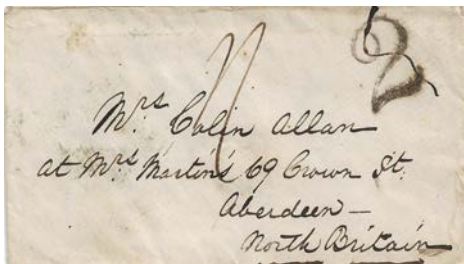 2
Mrs Colin Allan
at Mrs Martin's 69 Crown St.
Aberdeen —
North Britain